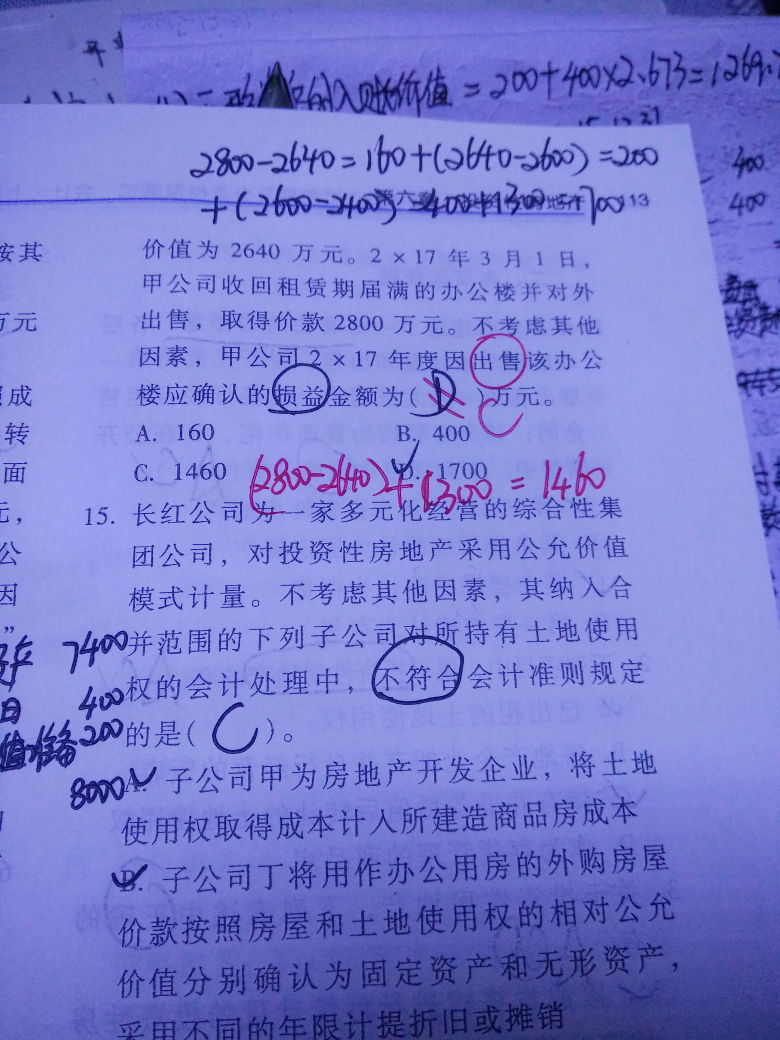 的入账价值 = 200+400×2.673=1269.
2800-2640=160+(2640-2600)=200
+(2600-2400)
400
400
第六章
113
价值为 2640 万元。2×17 年 3 月 1 日，
甲公司收回租赁期届满的办公楼并对外
出售，取得价款 2800 万元。不考虑其他
因素，甲公司 2×17 年度因出售该办公
楼应确认的损益金额为( D )万元。
C
A. 160 B. 400
C. 1460 D. 1700
(2800-2640)+1300=1460
15. 长红公司为一家多元化经营的综合性集
团公司，对投资性房地产采用公允价值
模式计量。不考虑其他因素，其纳入合
并范围的下列子公司对所持有土地使用
权的会计处理中，不符合会计准则规定
的是( C )。
A. 子公司甲为房地产开发企业，将土地
使用权取得成本计入所建造商品房成本
B. 子公司丁将用作办公用房的外购房屋
价款按照房屋和土地使用权的相对公允
价值分别确认为固定资产和无形资产，
采用不同的年限计提折旧或摊销
按其
万元
成
转
面
元，
公
因
”
7400
日 400
值准备 200
8000